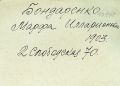 Бондаренко
Марфа Илларионовна
1903.
2 Слободская 70.